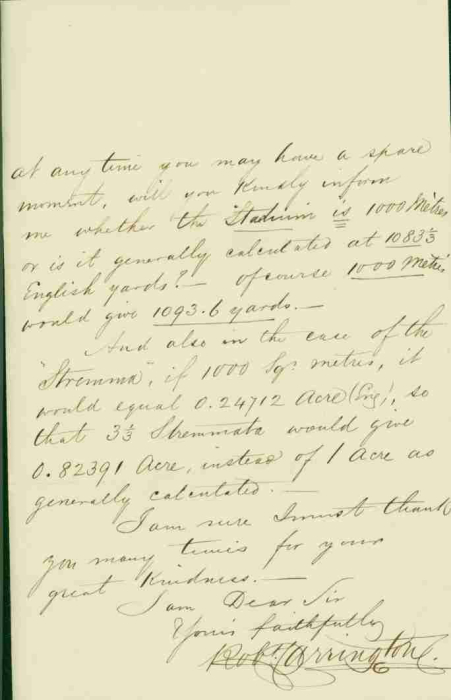 at any time you may have a spare
moment, will you Kindly inform
me whether the Stadium is 1000 Mètres
or is it generally calculated at 1083⅓
English yards? — of course 1000 Mètres
would give 1093.6 yards. —
And also in the case of the
"Stremma", if 1000 Sqr metres, it
would equal 0.24712 Acre (Eng), so
that 3⅓ Stremmata would give
0.82391 Acre, instead of 1 Acre as
generally calculated. —
I am sure I must thank
you many times for your
great Kindness. —
I am Dear Sir
Yours faithfully
Robt Carrington